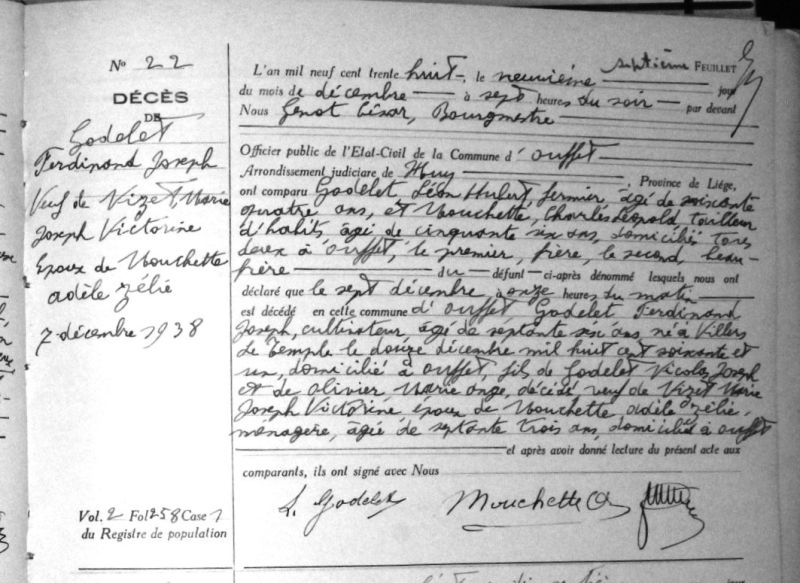 septième FEUILLET
No 22
DÉCÈS
DE
Godelet
Ferdinand Joseph
Veuf de Vizet, Marie
Joseph Victorine
Epoux de Mouchette
adèle Zélie
7 décembre 1938
Vol. 2 Fol 258 Case 1
du Registre de population
L'an mil neuf cent trente huit, le neuvième jour
du mois de décembre à sept heures du soir par devant
Nous Genot César, Bourgmestre
Officier public de l'Etat-Civil de la Commune d'Ouffet
Arrondissement judiciaire de Huy Province de Liége,
ont comparu Godelet, Léon Hubert, fermier, âgé de soixante
quatre ans, et Mouchette, Charles Léopold, tailleur
d'habits, âgé de cinquante six ans, domiciliés tous
deux à Ouffet, le premier, frère, le second, beau-
frère du défunt ci-après dénommé lesquels nous ont
déclaré que le sept décembre à onze heures du matin
est décédé en cette commune d'Ouffet Godelet Ferdinand
Joseph, cultivateur, âgé de septante six ans, né à Villers
Le Temple le douze décembre mil huit cent soixante et
un, domicilié à Ouffet, fils de Godelet Nicolas Joseph
et de Olivier, Marie ange, décédés, veuf de Vizet Marie
Joseph Victorine, époux de Mouchette adèle Zélie,
ménagère, âgée de septante trois ans, domiciliée à Ouffet
et après avoir donné lecture du présent acte aux
comparants, ils ont signé avec Nous
L. Godelet Mouchette Ch